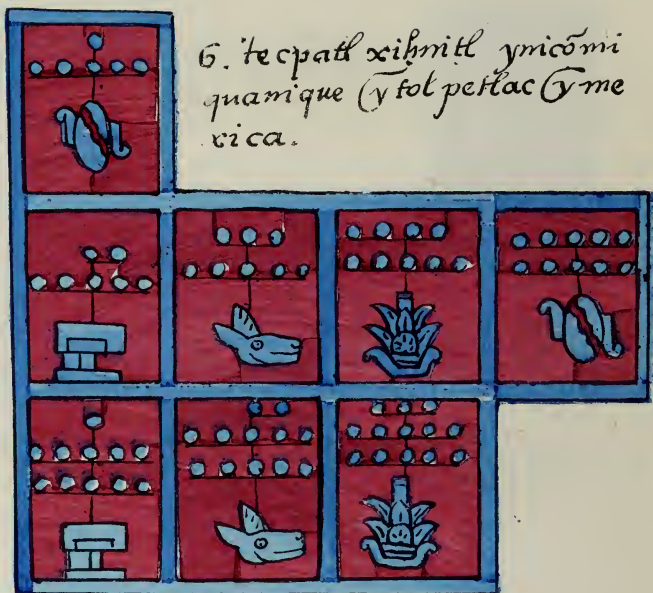 6. tecpatl xihuitl ynicōmi
quanique ȳ tolpetlac ȳ me
xica.